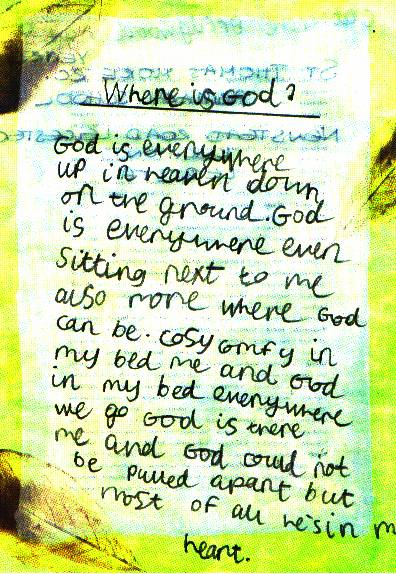 Where is God?
God is everywhere
up in heaven down
on the ground. God
is everywhere even
sitting next to me
also none where God
can be. cosy comfy in
my bed me and God
in my bed everywhere
we go God is there
me and God could not
be pulled apart but
most of all he's in m
heart.